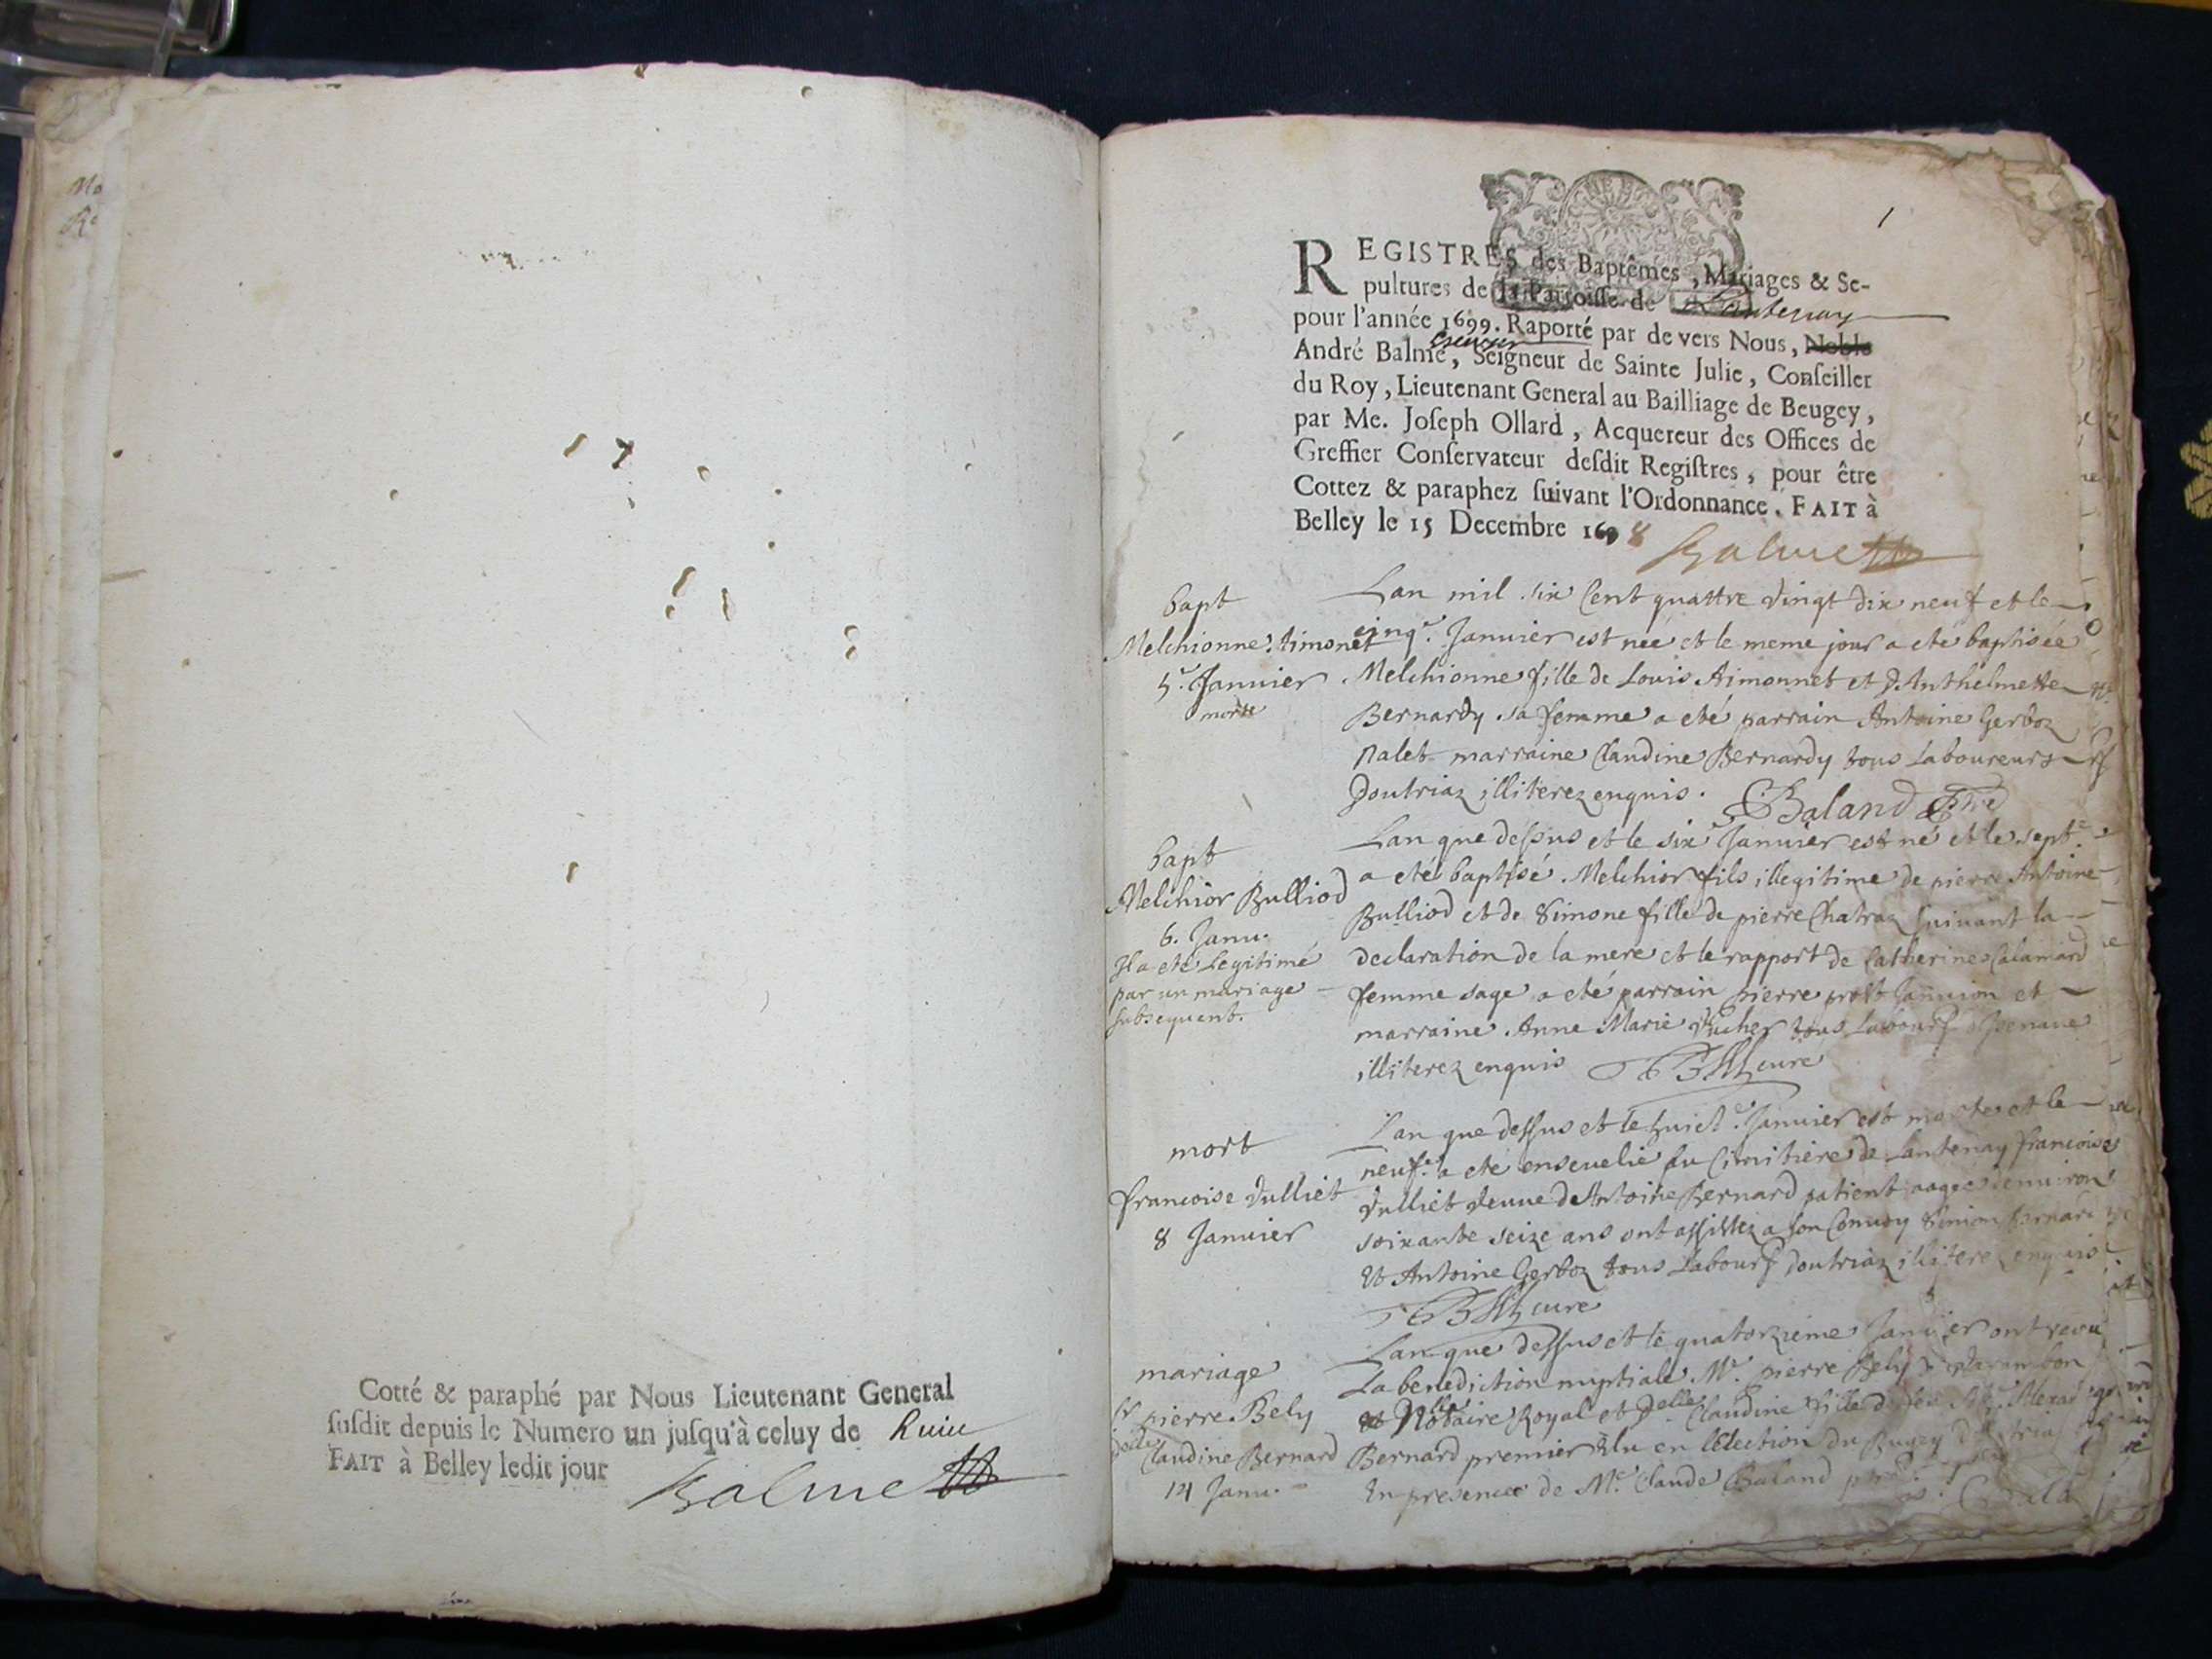 Cotté & paraphé par Nous Lieutenant General
suſdit depuis le Numero un juſqu'à celuy de huict
FAIT à Belley ledit jour
Balme
1
REGISTRES des Baptêmes, Mariages & Se-
pultures de la Parroisse de Lantenay
pour l'année 1699. Raporté par de vers Nous, Noble
Escuyer
André Balme, Seigneur de Sainte Julie, Conſeiller
du Roy, Lieutenant General au Bailliage de Beugey,
par Me. Joſeph Ollard, Acquereur des Offices de
Greffier Conſervateur deſdit Regiſtres, pour être
Cottez & paraphez ſuivant l'Ordonnance. FAIT à
Belley le 15 Decembre 1698
Balme
bapt
Melchionne Aimonet
5e Janvier
morte
Lan mil six Cent quattre vingt dix neuf et le
cinqe. Janvier est née et le meme jour a eté baptisée
Melchionne fille de Louis Aimonnet et d'Anthelmette
Bernardy sa femme a eté parrain Antoine Gerboz
palet marraine Claudine Bernardy tous Laboureurs
doutriaz illiterez enquis. CBaland
bapt
Melchior Bulliod
6. Janv.
Il a eté Legitimé
par un mariage
subsequent.
Lan que dessus et le sixe Janvier est né et le septe.
a eté baptisé Melchior fils illegitime de pierre Antoine
Bulliod et de Simone fille de pierre Chatraz suivant la
declaration de la mere et le rapport de Catherine Calamard
femme sage a eté parrain pierre prost Janvion et
marraine Anne Marie tous Labours
illiterez enquis cure
mort
francoise Vulliet
8 Janvier
Lan que dessus et le huicte. Janvier est morte et le
neufe. a eté ensevelie au Cimitiere de Lantenay francoise
Vulliet veuve de Antoine Bernard patient aagee denviron
soixante seize ans ont assistez a son Convoy Simon Bernard
Et Antoine Gerboz tous Labours doutriaz illiterez enquis
cure
mariage
Sr pierre Bely
delle
Claudine Bernard
14 Janv.
Lan que dessus et le quatorzieme Janvier ont receu
La benediction nuptiale Me. pierre Bely de Varambon
Notaire Royal et Delle Claudine fille de feu
Bernard premier Elu en lElection du Bugey
En presence de Me. Claude Baland